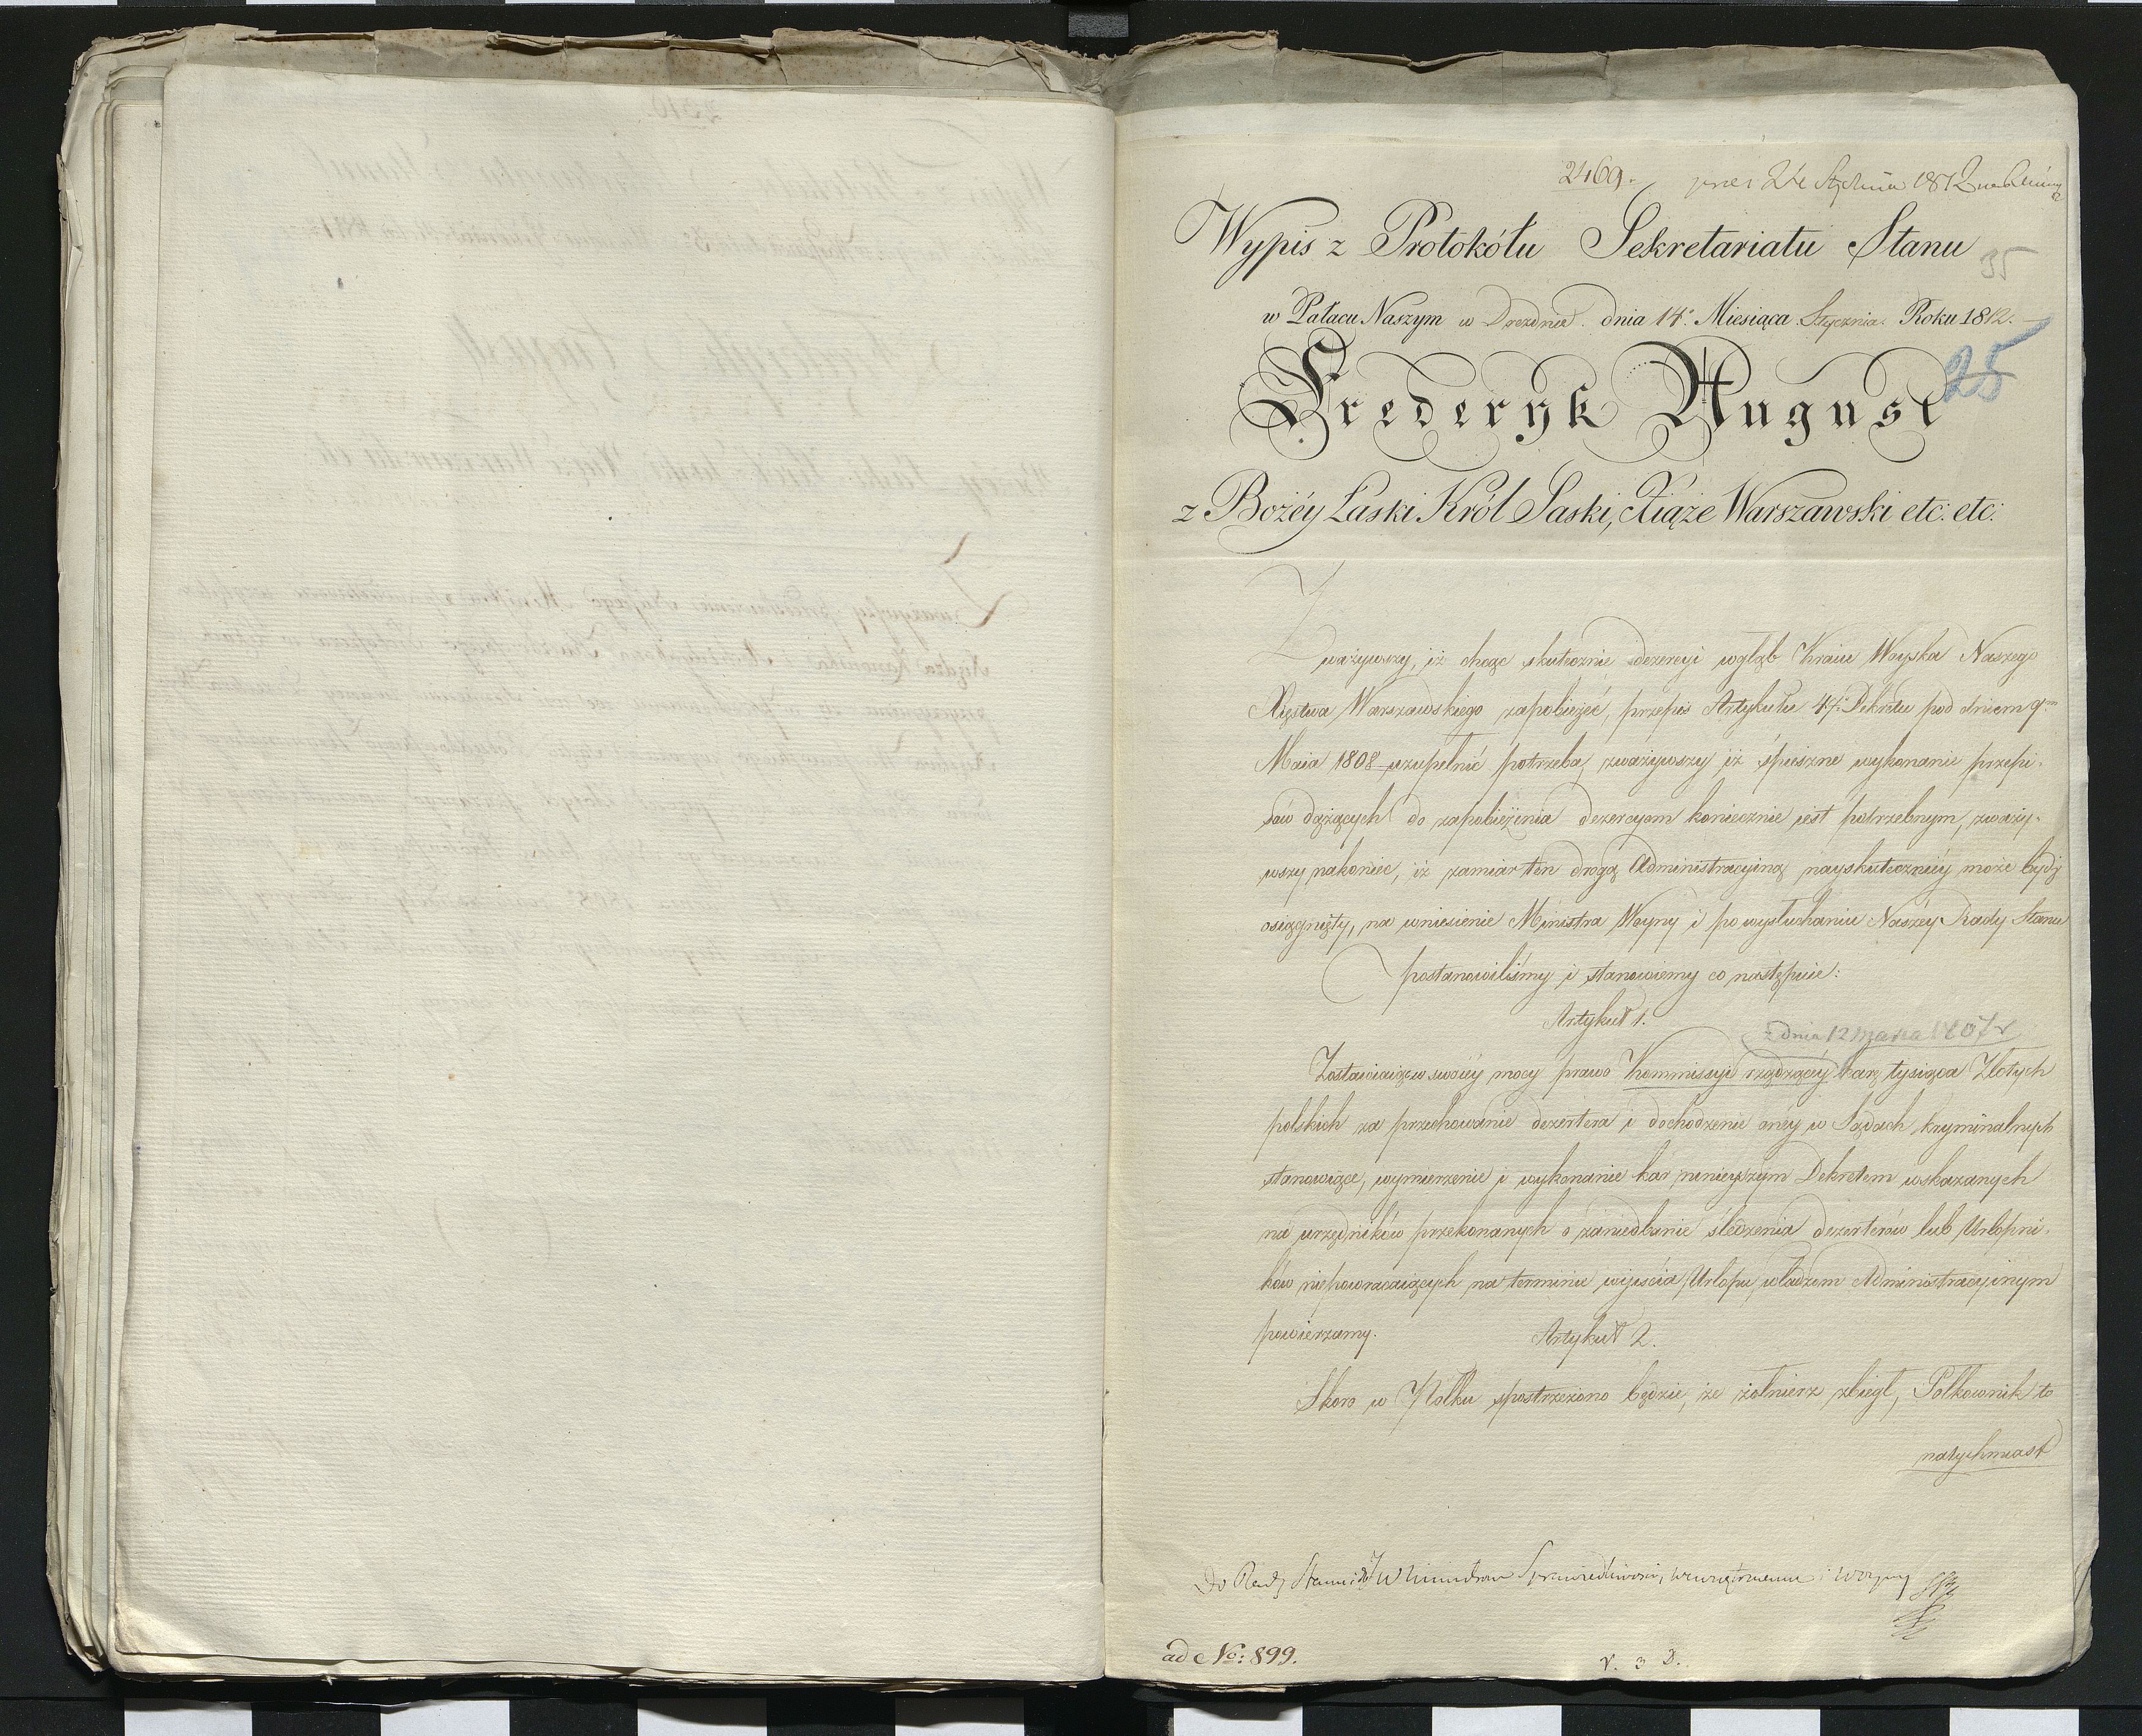 2469. 24 Stycznia 1812
Wypis z Protokółu Sekretariatu Stanu
35
w Pałacu Naszym w Dreznie. dnia 14. Miesiąca Stycznia. Roku 1812.
25
Frederyk August
z Bożéy Łaski Król Saski, Xiąże Warszawski etc: etc:
Zważywszy, iż chcąc skutecznie dezercyi wgłąb Kraiu Woyska Naszego
Xięstwa Warszawskiego zapobieżeć, przepis Artykułu 47. Dekretu pod dniem 9m
Maia 1808 uzupełnić potrzeba, zważywszy iż śpieszne wykonanie przepi-
sów dążących do zapobieżenia dezercyom koniecznie iest potrzebnym, zważy-
wszy nakoniec, iż zamiar ten drogą Administracyiną nayskutecznièy może bydź
osiągnięty, na wniesienie Ministra Woyny i po wysłuchaniu Naszéy Rady Stanu
postanowiliśmy i stanowiemy co następuie:
Artykuł 1.
z dnia 12 marca 1807 r
Zostawiaiąc w swoiéy mocy prawo Kommissyi rządzącéy karę tysiąca Złotych
polskich za przechowanie dezertera i dochodzenie onéy w Sądach kryminalnych
stanowiące, wymierzenie i wykonanie kar ninieyszym Dekretem wskazanych
na urzędników przekonanych o zaniedbanie śledzenia dezerterów lub Urlopni-
ków niepowracaiących na terminie wyiścia Urlopu, władzom Administracyinym
powierzamy.
Artykuł 2.
Skoro w Półku spostrzeżono będzie, że żołnierz zbiegł, Półkownik to
natychmiast
Do Rady Stanu i do JW Ministrów Sprawiedliwości, wewnętrznego i Woyny
ad No: 899.
V. 3 D.